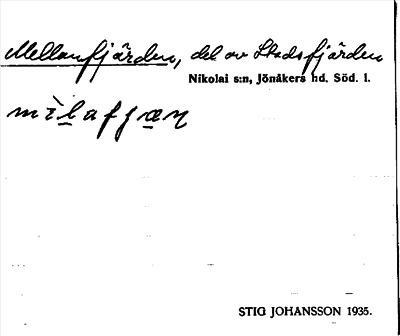 Mellanfjärden, del av Stadsfjärden
Nikolai s:n, Jönåkers hd. Söd. l.
STIG JOHANSSON 1935.